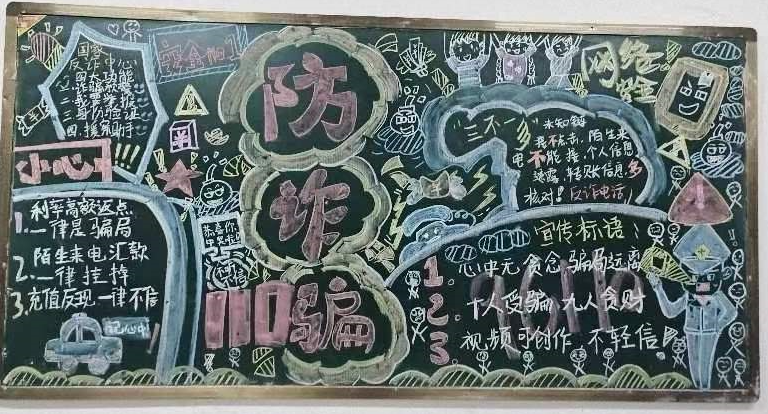 国家
反诈中心
四大功能
一.诈骗预警
三.身份验证
四.
小心!!!
1.利率高额返点
一律是骗局
2.陌生来电汇款
一律挂掉
3.充值反现一律不信
小心!
奖金
恭喜你
中奖啦!
不信
防
诈
骗
110
网络
安全
"三不一多"未知链
我不点击,陌生来
电不能接,个人信息
不透露,转账信息多
核对!反诈电话
宣传标语:
1.心中无贪念 骗局远离
2.十人受骗 九人贪财
3.视频可创作 不轻信